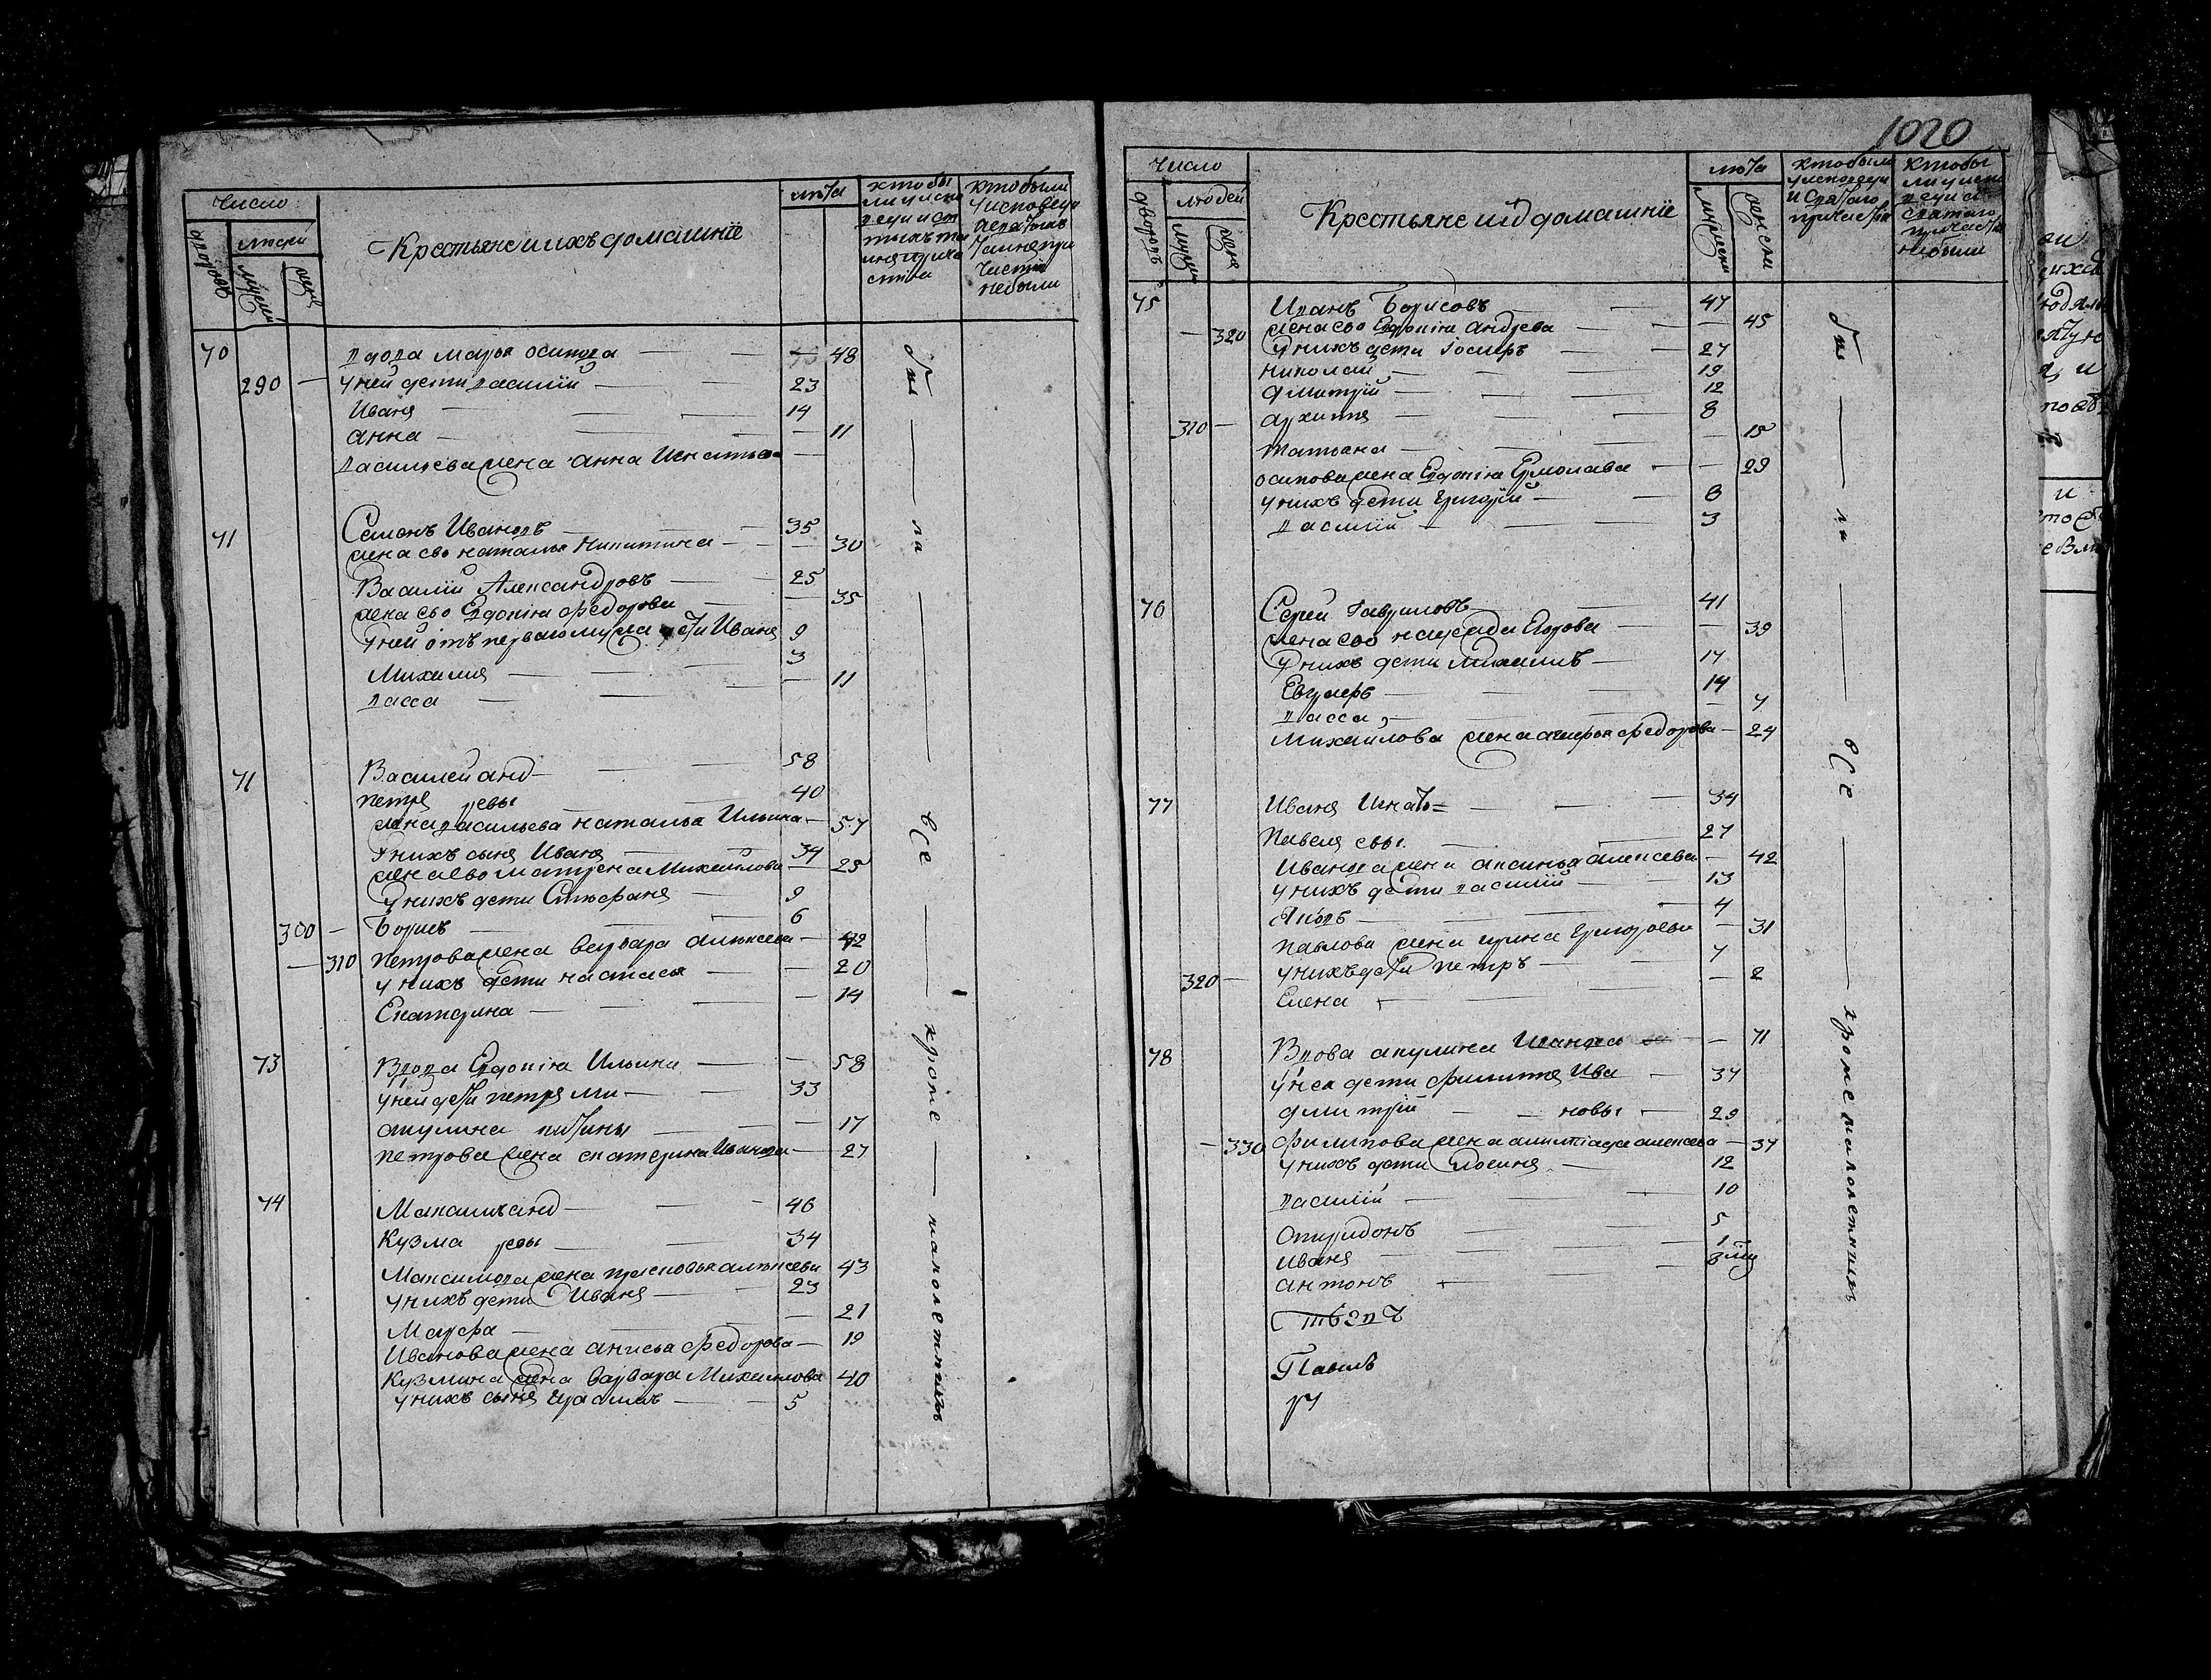 число
людей
дворовъ
мужеска
женска
Крестьяне и ихъ домашнїе
лѣта
кто бы
ли у испо
веди и свя
тыхъ та
инъ прича
стїя
кто были
у исповеди
а святаго
причастїя
не были
70
вдова марья осипова — — 48
290 — у ней дети василїй — 23
Иванъ — 14
анна — 11
васильева жена анна Игнатьева —
71
Семенъ Ивановъ — 35
жена ево наталья Никитина — 30
Василїй Александровъ — 25
жена ево Евдокїя Федорова — 35
у ней отъ перваго мужа дети Иванъ 9
Михаила — 3
васса — 11
71
Василей анд— 58
петръ ревы 40
жена васильева наталья Ильина — 57
У нихъ сынъ Иванъ 34
жена ево матрена Михайлова — 25
У нихъ дети Стефанъ — 9
300 — Борисъ — 6
— 310 петрова жена варвара алексева — 42
у нихъ дети настасья — 20
Екатерина — 14
73
Вдова Евдокїя Ильина — 58
у ней дети петръ ми— 33
акулина китины — 17
петрова жена екатерина Иванова — 27
74
Максимъ анд— 46
Кузма ревы — 34
Максимова жена прасковья алексева 43
у нихъ дети Иванъ — 23
Марфа — 21
Иванова жена анисья Федорова — 19
Кузмина жена варвара Михайлова 40
у нихъ сынъ герасимъ — 5
бы — ли — все — кроме — малолетнихъ
1020
Число
людей
дворовъ
мужеск
женск
Крестьяне и их домашнїе
лѣта
мужеска
женска
кто были
у исповеди
и Святаго
причастїя
Кто бы
ли у испо
веди а
святаго
причастїя
не были
75
Иванъ Борисовъ — 47
— 320 жена ево Евдокїя андреева — 45
У нихъ дети Iосифъ — 27
николай — 19
дмитрїй — 12
310 — архиппъ — 8
татьяна — 15
осипова жена Евдокїя Ермолаева — 29
у нихъ дети григорїй — 8
василїй — 3
76
Сергей Гавриловъ 41
жена ево Егорова — 39
У нихъ дети Михаилъ — 17
14
васса — 7
Михайлова жена федорова — 24
77
Иванъ Игнать= 34
Павелъ евы. 27
Иванова жена аксинья алексева — 42
у нихъ дети василїй — 13
Яковъ — 4
павлова жена ирина григорьева — 31
320 — у нихъ дети петръ — 7
Елена — 2
78
Вдова акулина Иванова — 71
у нея дети филиппъ Ива — 37
дмитрїй — новы — 29
— 330 филипова жена алексева — 37
у нихъ дети — 12
василїй — 10
спиридонъ 5
иванъ 1
антонъ
Павелъ
бы — ли — все — кроме малолетнихъ